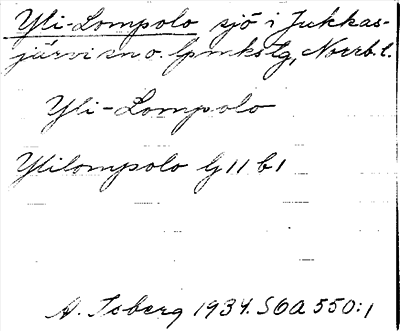 Yli-Lompolo sjö i Jukkas-
järvi sn o. lpmkstg, Norrb. l.
Yli-Lompolo
Ylilompolo G 11 b 1
A. Isberg 1934. SOA 550:1